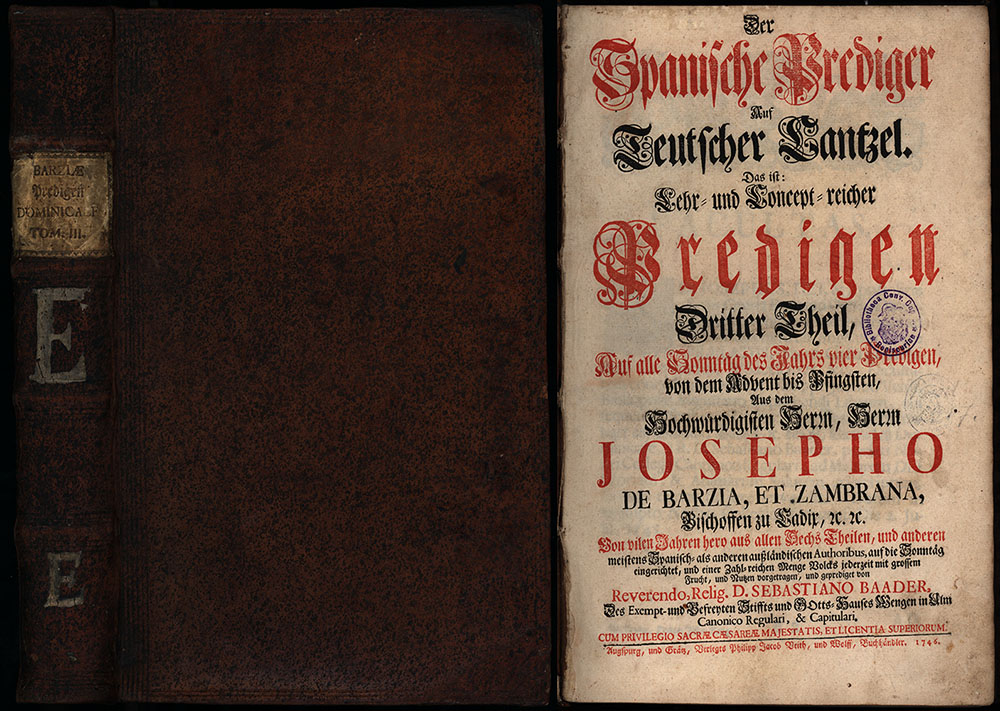 BARZIÆ
Predigen
DOMINICALE
TOM. III.
E
E
Der
Spanische Prediger
Auf
Teutscher Cantzel.
Das ist:
Lehr- und Concept-reicher
Predigen
Dritter Theil,
Auf alle Sonntäg des Jahrs vier Predigen,
von dem Advent bis Pfingsten,
Aus dem
Hochwürdigisten Herrn, Herrn
JOSEPHO
DE BARZIA, ET ZAMBRANA,
Bischoffen zu Cadix, ꝛc. ꝛc.
Von vilen Jahren hero aus allen Sechs Theilen, und anderen
meistens Spanisch- als anderen außländischen Authoribus, auf die Sonntäg
eingerichtet, und einer Zahl-reichen Menge Volcks jederzeit mit grossem
Frucht, und Nutzen vorgetragen, und geprediget von
Reverendo, Relig. D. SEBASTIANO BAADER,
Des Exempt- und Befreyten Stiffts und GOtts-Hauses Wengen in Ulm
Canonico Regulari, & Capitulari.
CUM PRIVILEGIO SACRÆ CÆSAREÆ MAJESTATIS, ET LICENTIA SUPERIORUM.
Augspurg, und Grätz, Verlegts Philipp Jacob Veith, und Wolff, Buchhändler. 1746.
Bibliotheca Conv.